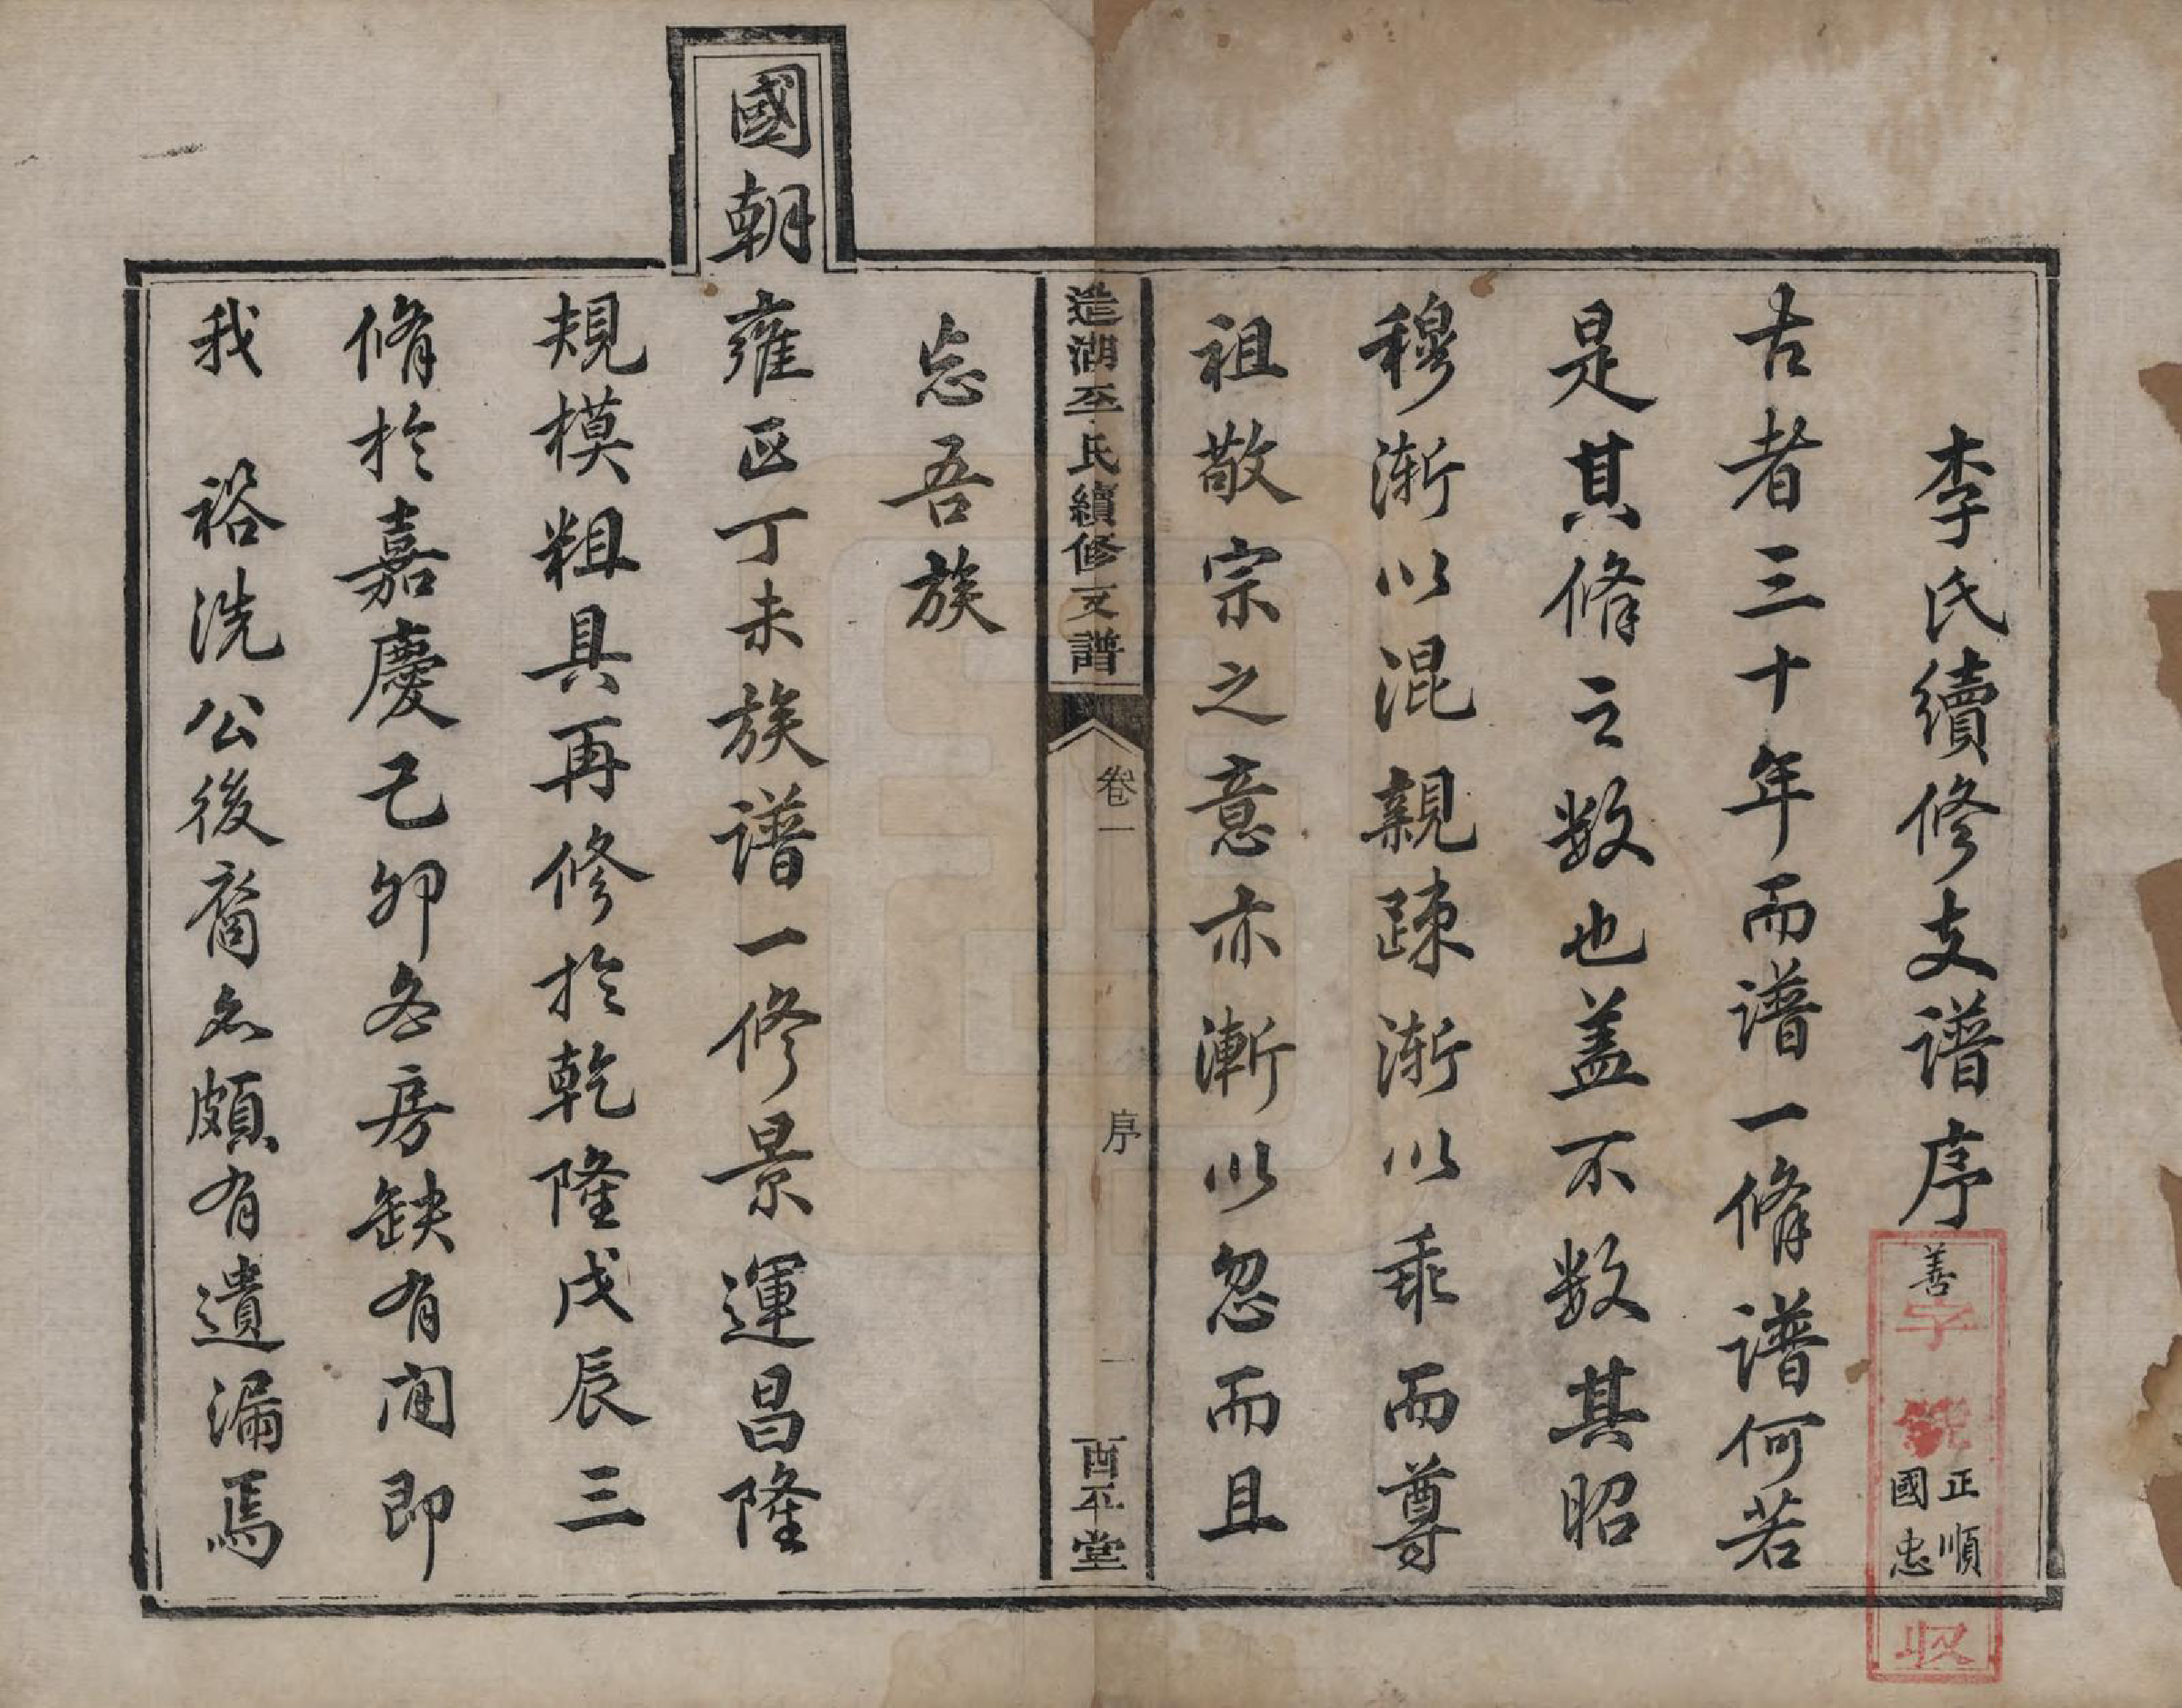 李氏續修支譜序
善字號
正順
國忠
收
古者三十年而譜一脩譜何若
是其脩之数也盖不数其昭
穆漸以混親疎漸以乖而尊
祖敬宗之意亦漸以忽而且
造湖李氏續修支譜 卷一 序 一 酉平堂
忘吾族
國朝雍正丁未族譜一修景運昌隆
規模粗具再修於乾隆戊辰三
脩於嘉慶己卯各房缺有间即
我 裕洗公後裔名頗有遺漏焉